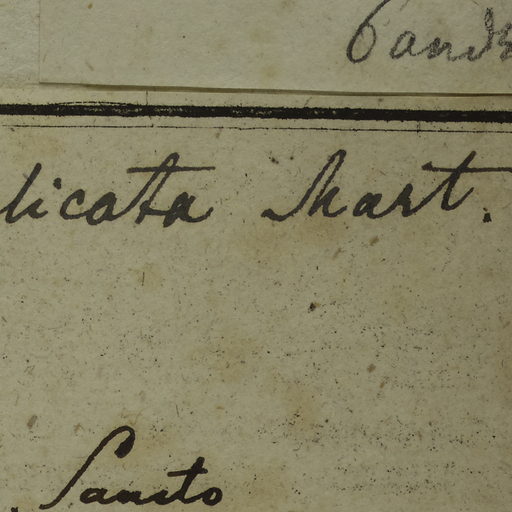 licata Mart.
Sancto